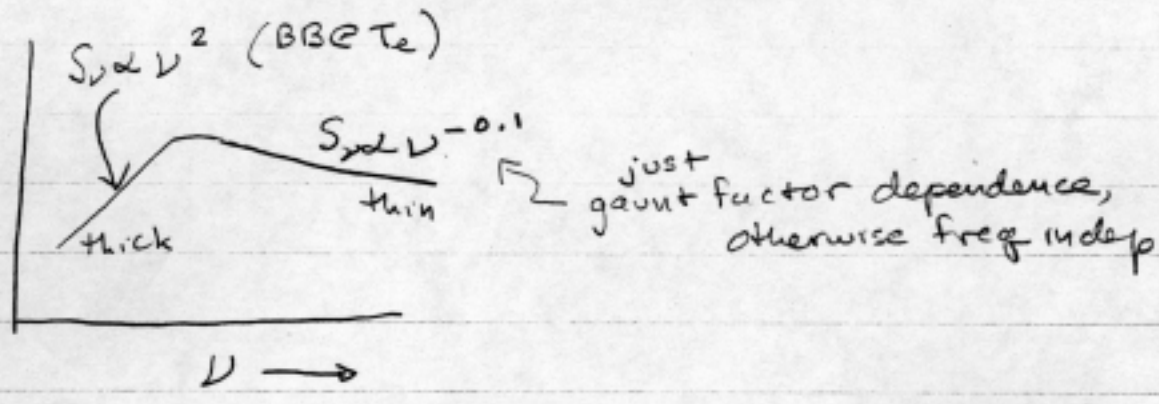 S_ν ∝ ν^2 (BB@ T_e)
S_ν ∝ ν^-0.1
thin
thick
just
gaunt factor dependence,
otherwise freq indep
ν →